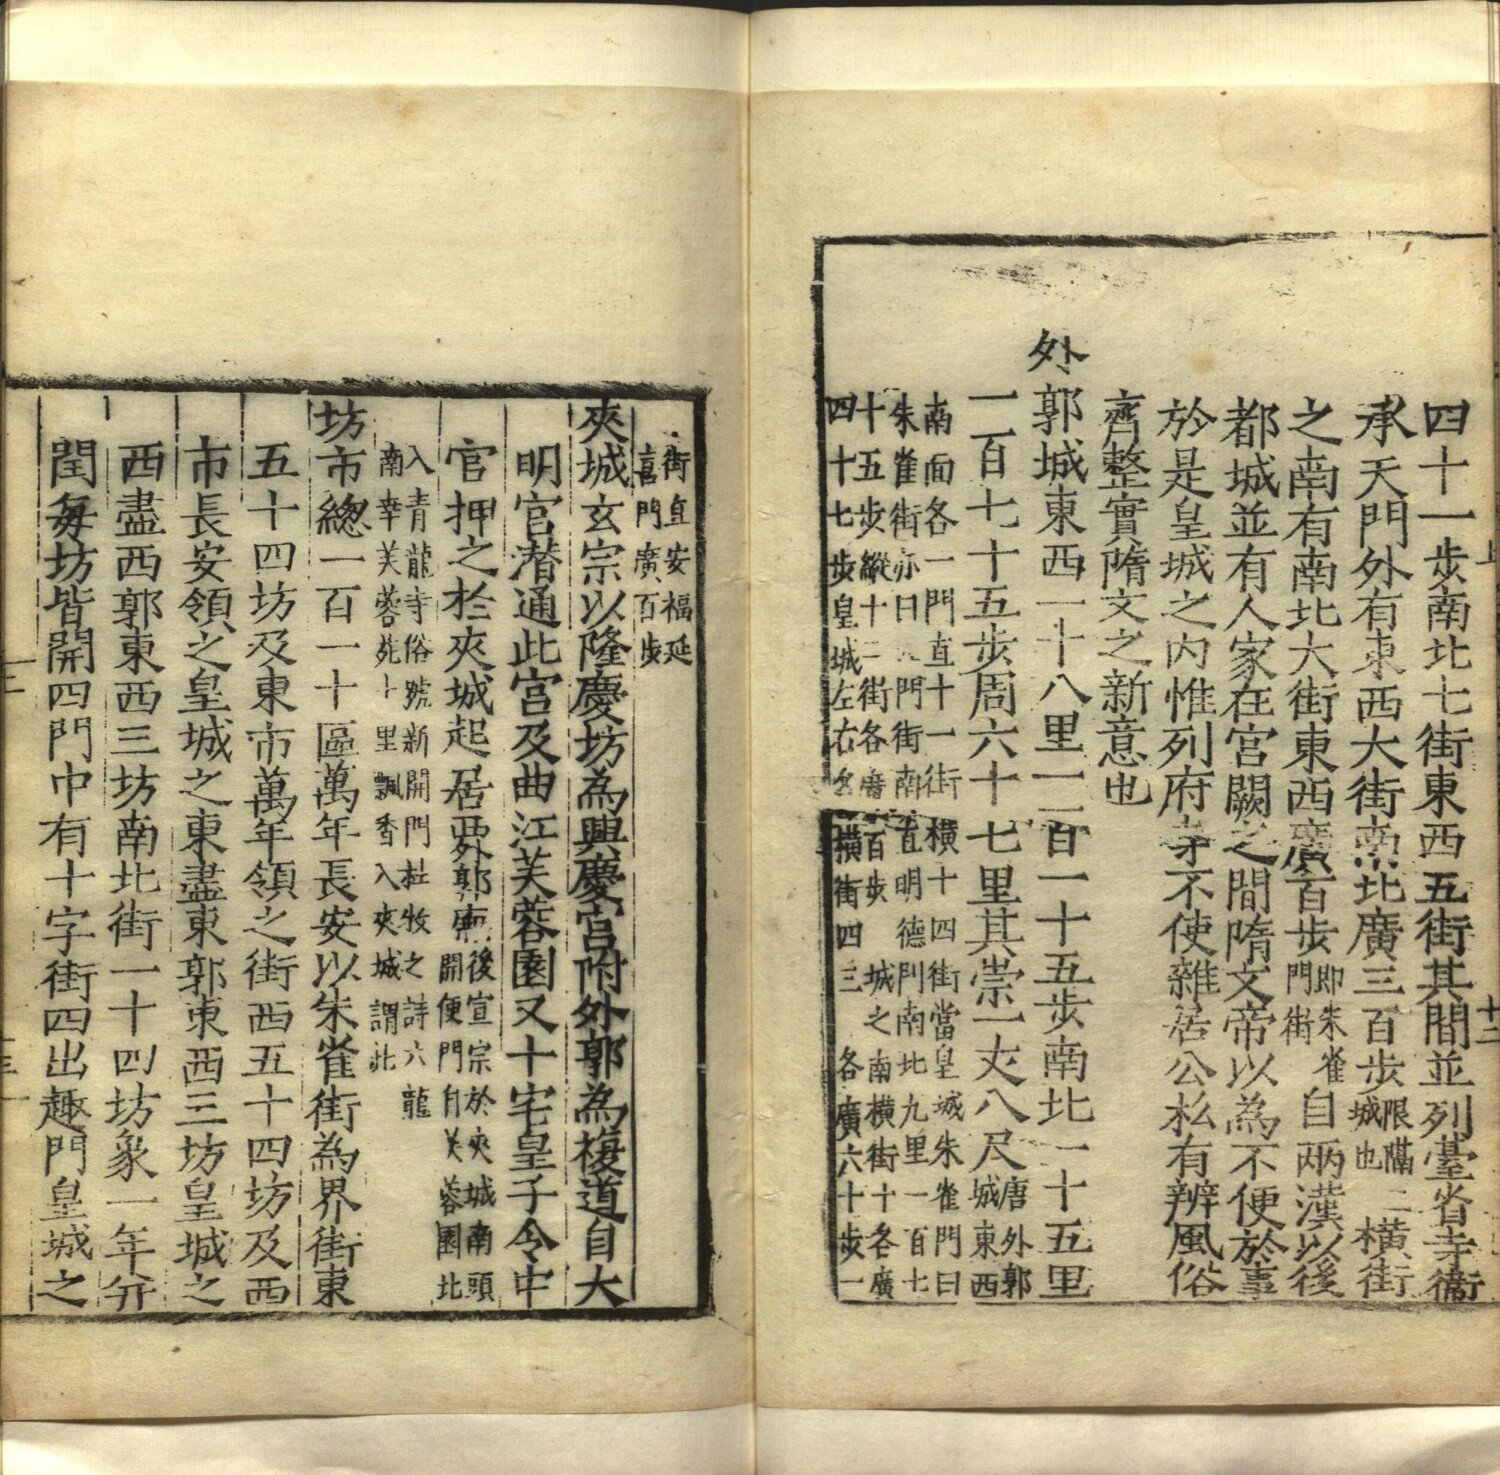 四十一步南北七街東西五街其間並列臺省寺衛
承天門外有東西大街南北廣三百步限隔二城也橫街
之南有南北大街東西廣百步即朱雀門街自兩漢以後
都城並有人家在宮闕之間隋文帝以為不便於事
於是皇城之內惟列府寺不使雜居公私有辨風俗
齊整實隋文之新意也
外郭城東西一十八里一百一十五步南北一十五里
一百七十五步周六十七里其崇一丈八尺唐外郭城東西
南面各一門直十一街橫十四街當皇城朱雀門曰
朱雀街亦曰天門街南直明德門南北九里一百七
十五步縱十二街各廣百步城之南橫街十各廣
四十七步皇城左右各橫街四三各廣六十步一
街直安福延
喜門廣百步
夾城玄宗以隆慶坊為興慶宮附外郭為複道自大
明宮潛通此宮及曲江芙蓉園又十宅皇子令中
官押之於夾城起居
後宣宗於夾城南頭
開便門自芙蓉園北
入青龍寺俗號新開門杜牧之詩六龍
南幸芙蓉苑十里飄香入夾城謂此
坊市總一百一十區萬年長安以朱雀街為界街東
五十四坊及東市萬年領之街西五十四坊及西
市長安領之皇城之東盡東郭東西三坊皇城之
西盡西郭東西三坊南北街一十四坊象一年分
閏每坊皆開四門中有十字街四出趣門皇城之